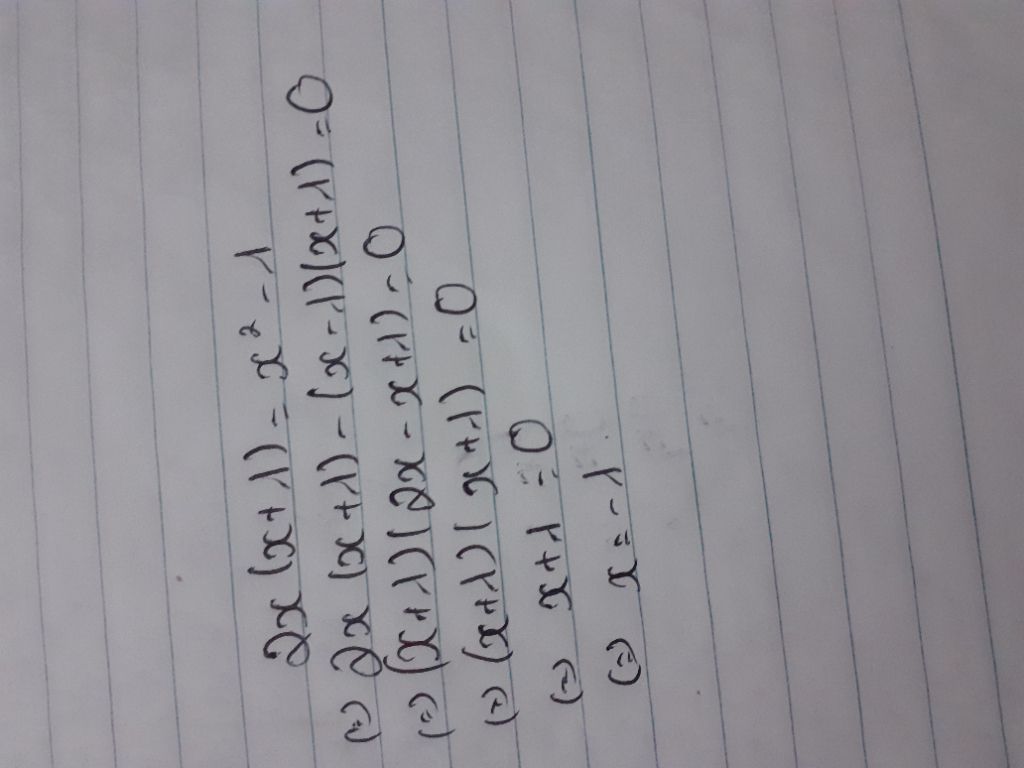 2x(x+1) = x² - 1
(=) 2x(x+1) - (x-1)(x+1) = 0
(=) (x+1)(2x - x+1) = 0
(=) (x+1)(x+1) = 0
(=) x+1 = 0
(=) x = -1